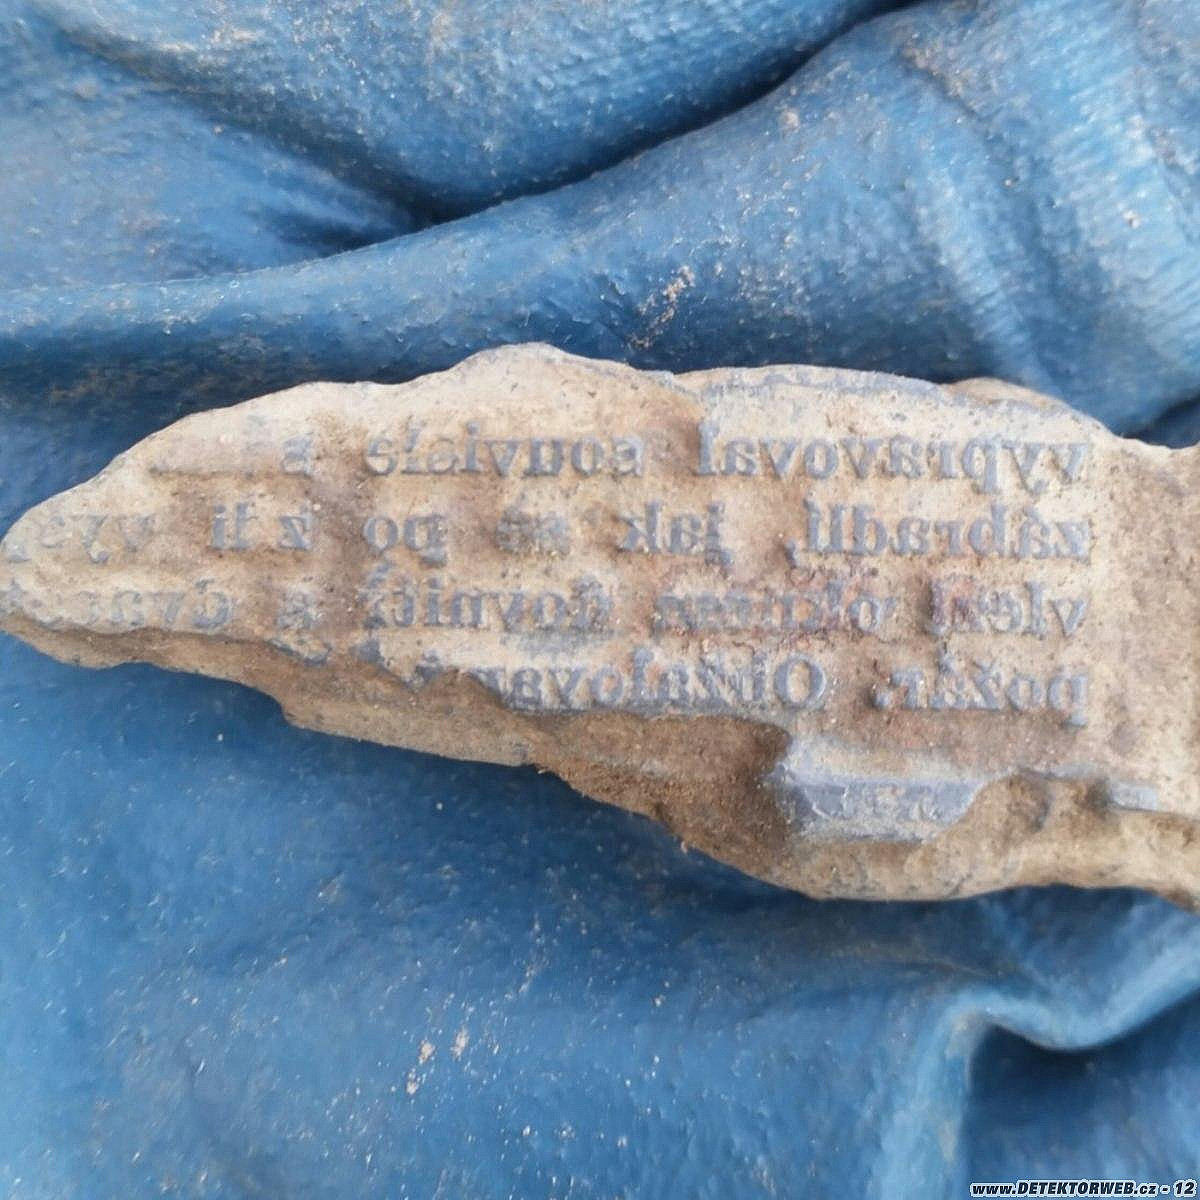 vypravoval souvisle s
zábradlí, jak se po z li vysp
vlezl oknem dovnitř a dva
požár. Obžalovaný
www.DETEKTORWEB.cz - 12